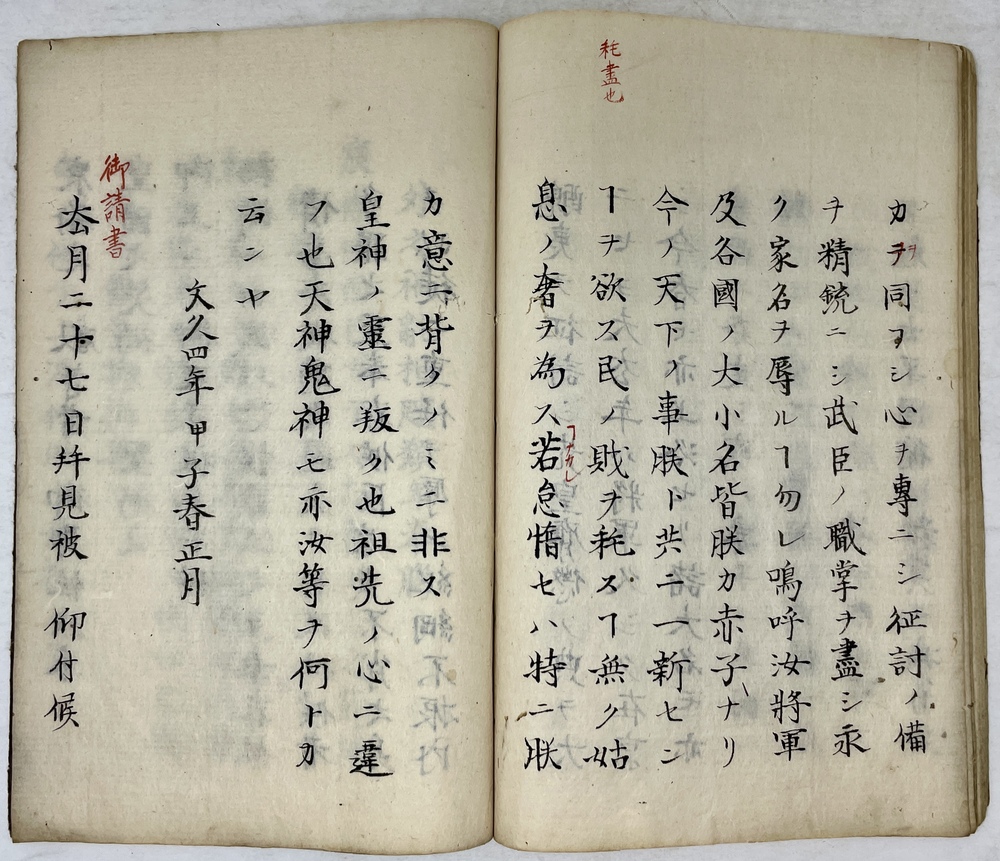 耗盡也
力ヲ同フシ心ヲ專ニシ征討ノ備
ヲ精銳ニシ武臣ノ職掌ヲ盡シ永
ク家名ヲ辱ルヿ勿レ嗚呼汝將軍
及各國ノ大小名皆朕カ赤子ナリ
今ノ天下ノ事朕ト共ニ一新セン
ヿヲ欲ス民ノ財ヲ耗スヿ無ク姑
息ノ奢ヲ為ス
ヿナカレ
若怠惰セハ特ニ朕
カ意ニ背クノミニ非ス
皇神ノ靈ニ叛ク也祖先ノ心ニ違
フ也天神鬼神モ亦汝等ヲ何トカ
云ンヤ
文久四年甲子春正月
御請書
去月二十七日拜見被 仰付候